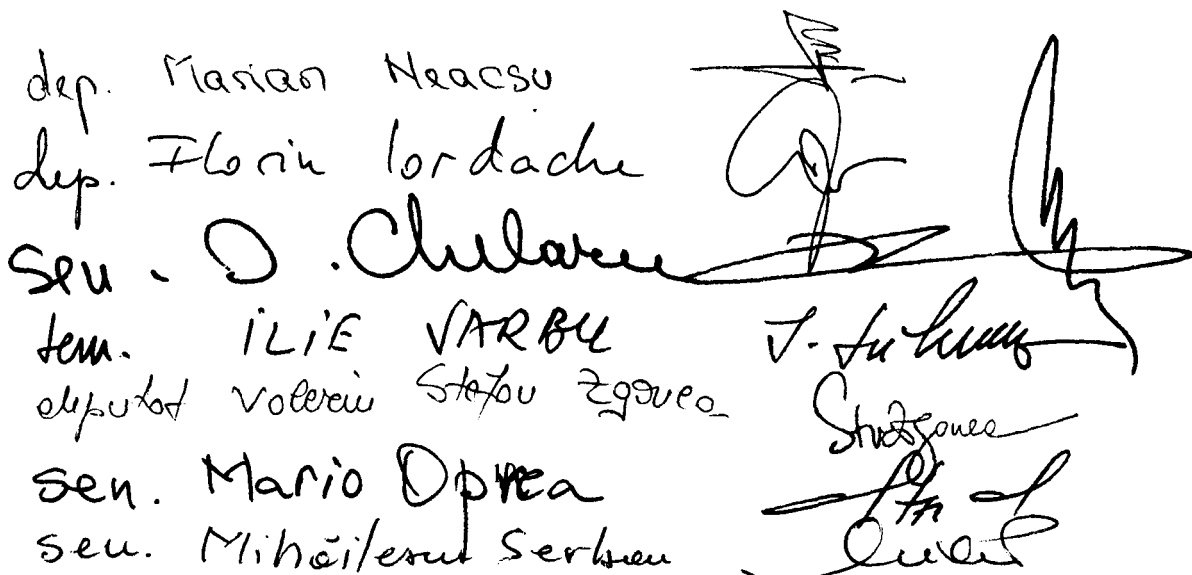 dep. Marian Neacsu
dep. Florin Iordache
sen. D. Chelaru
sen. ILIE SARBU
deputat Valeriu Stefan Zgonea
sen. Mario Oprea
sen. Mihăilescu Serban